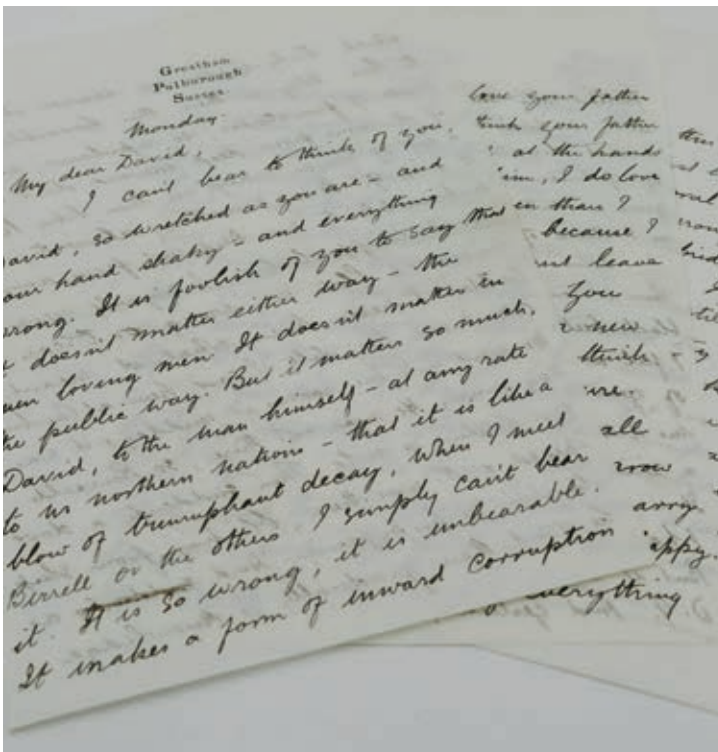 Greatham
Pulborough
Sussex
Monday.
My dear David,
I can't bear to think of you,
David, so wretched as you are – and
your hand shaky – and everything
wrong. It is foolish of you to say that
it doesn't matter either way – the
men loving men. It doesn't matter in
the public way. But it matters so much,
David, to the man himself – at any rate
to us northern nations – that it is like a
blow of triumphant decay, when I meet
Birrell or the others. I simply can't bear
it. It is so wrong, it is unbearable.
It makes a form of inward corruption
love your father
think your father
at the hands
him, I do love
than I
because I
leave
you
new
think
all
everything